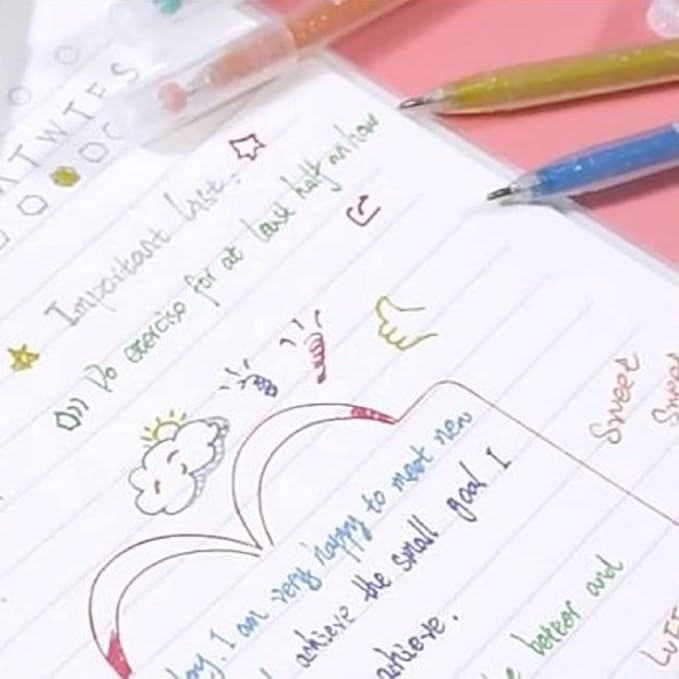 M T W T F S
Important List:
Do exercise for at least half an hour
Sweet
I am very happy to meet new
achieve the small goal I
achieve.
better and